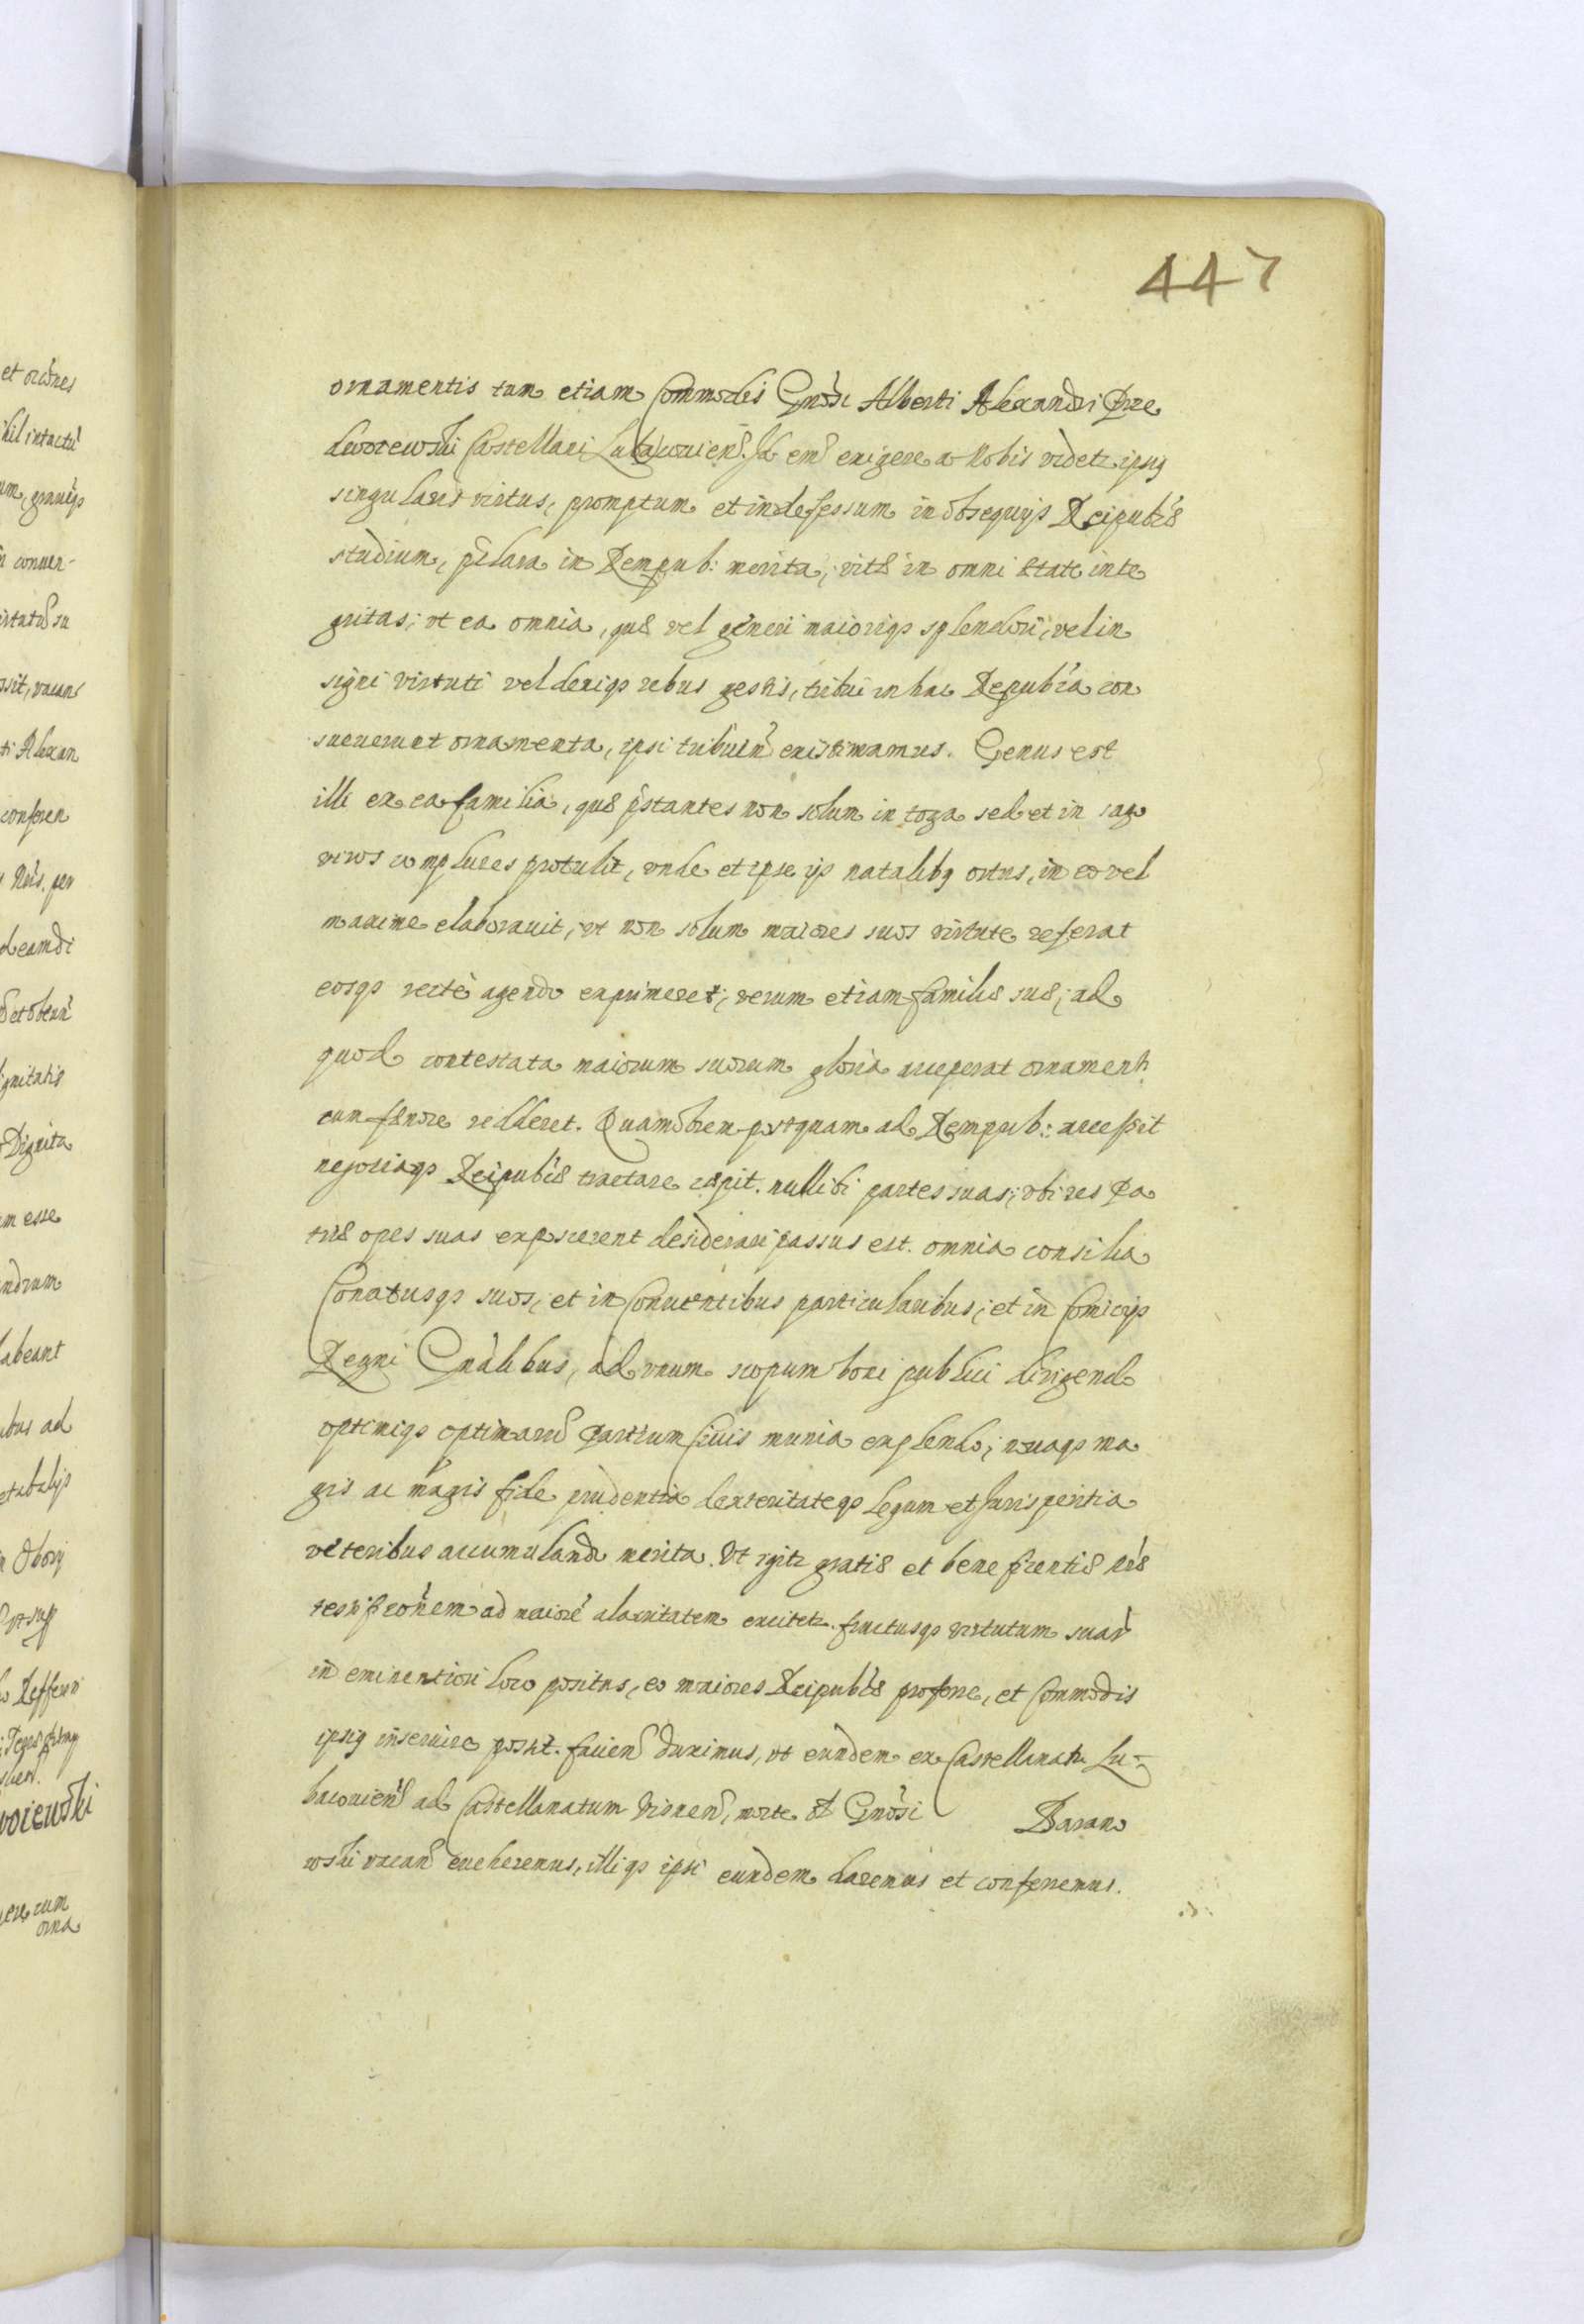 447
ornamentis tum etiam Commodis Gnosi Alberti Alexandri Prze
dworewski Castellani Lubaczouien. Id em exigere a Nobis videtr ipsiq
singularis virtus, promptum et indefessum in obsequijs Reipublæ
studium, pclara in Rempub: merita, vitæ in omni ætate inte
gritas; vt ea omnia, quæ vel generi maiorīqs splendori, vel in
signi virtuti vel deniqs rebus gestis, tribui in hac Republca con
sueuerunt ornamenta, ipsi tribuen existimamus. Genus est
illi ex ea familia, quæ pstantes non solum in toga sed et in sago
viros complures protulit, vnde et ipse ijs natalibq ortus, in eo vel
maxime elaborauit, vt non solum maiores suos virtute referat
eosqs rectè agendo exprimeret; verum etiam familiæ suæ; ad
quod contestata maiorum suorum gloria acceperat ornamenti
cum fænore redderet. Quamobrem postquam ad Rempub: accessit
negotiaqs Reipublæ tractare cæpit. nullibi partes suas; vbi res Pa
triæ opes suas exposcerent desiderari passus est. omnia consilia
Conatusqs suos, et in Conuentibus particularibus; et in Comicijs
Regni Gnalibus, ad vnum scopum boni publici dirigendo
optimiqs optimarū partium Ciuis munia explendo; nouaqs ma
gis ac magis fide prudentia dexteritateqs legum et Juris peritia
veteribus accumulando merita. Vt igitr gratiæ et beneficentiæ nræ
testificonem ad maiorē alacritatem excitetr. fructusqs virtutum suar
in eminentiori loco positus, eo maiores Reipublæ proferre, et Commodis
ipsiq inseruire possit. facien duximus, vt eundem ex Castellanatu Lu-
baczouien ad Castellanatum Visnen, morte olī Gnosi Parano
wski vacan eueheremus, illiqs ipsi eundem daremus et conferremus.